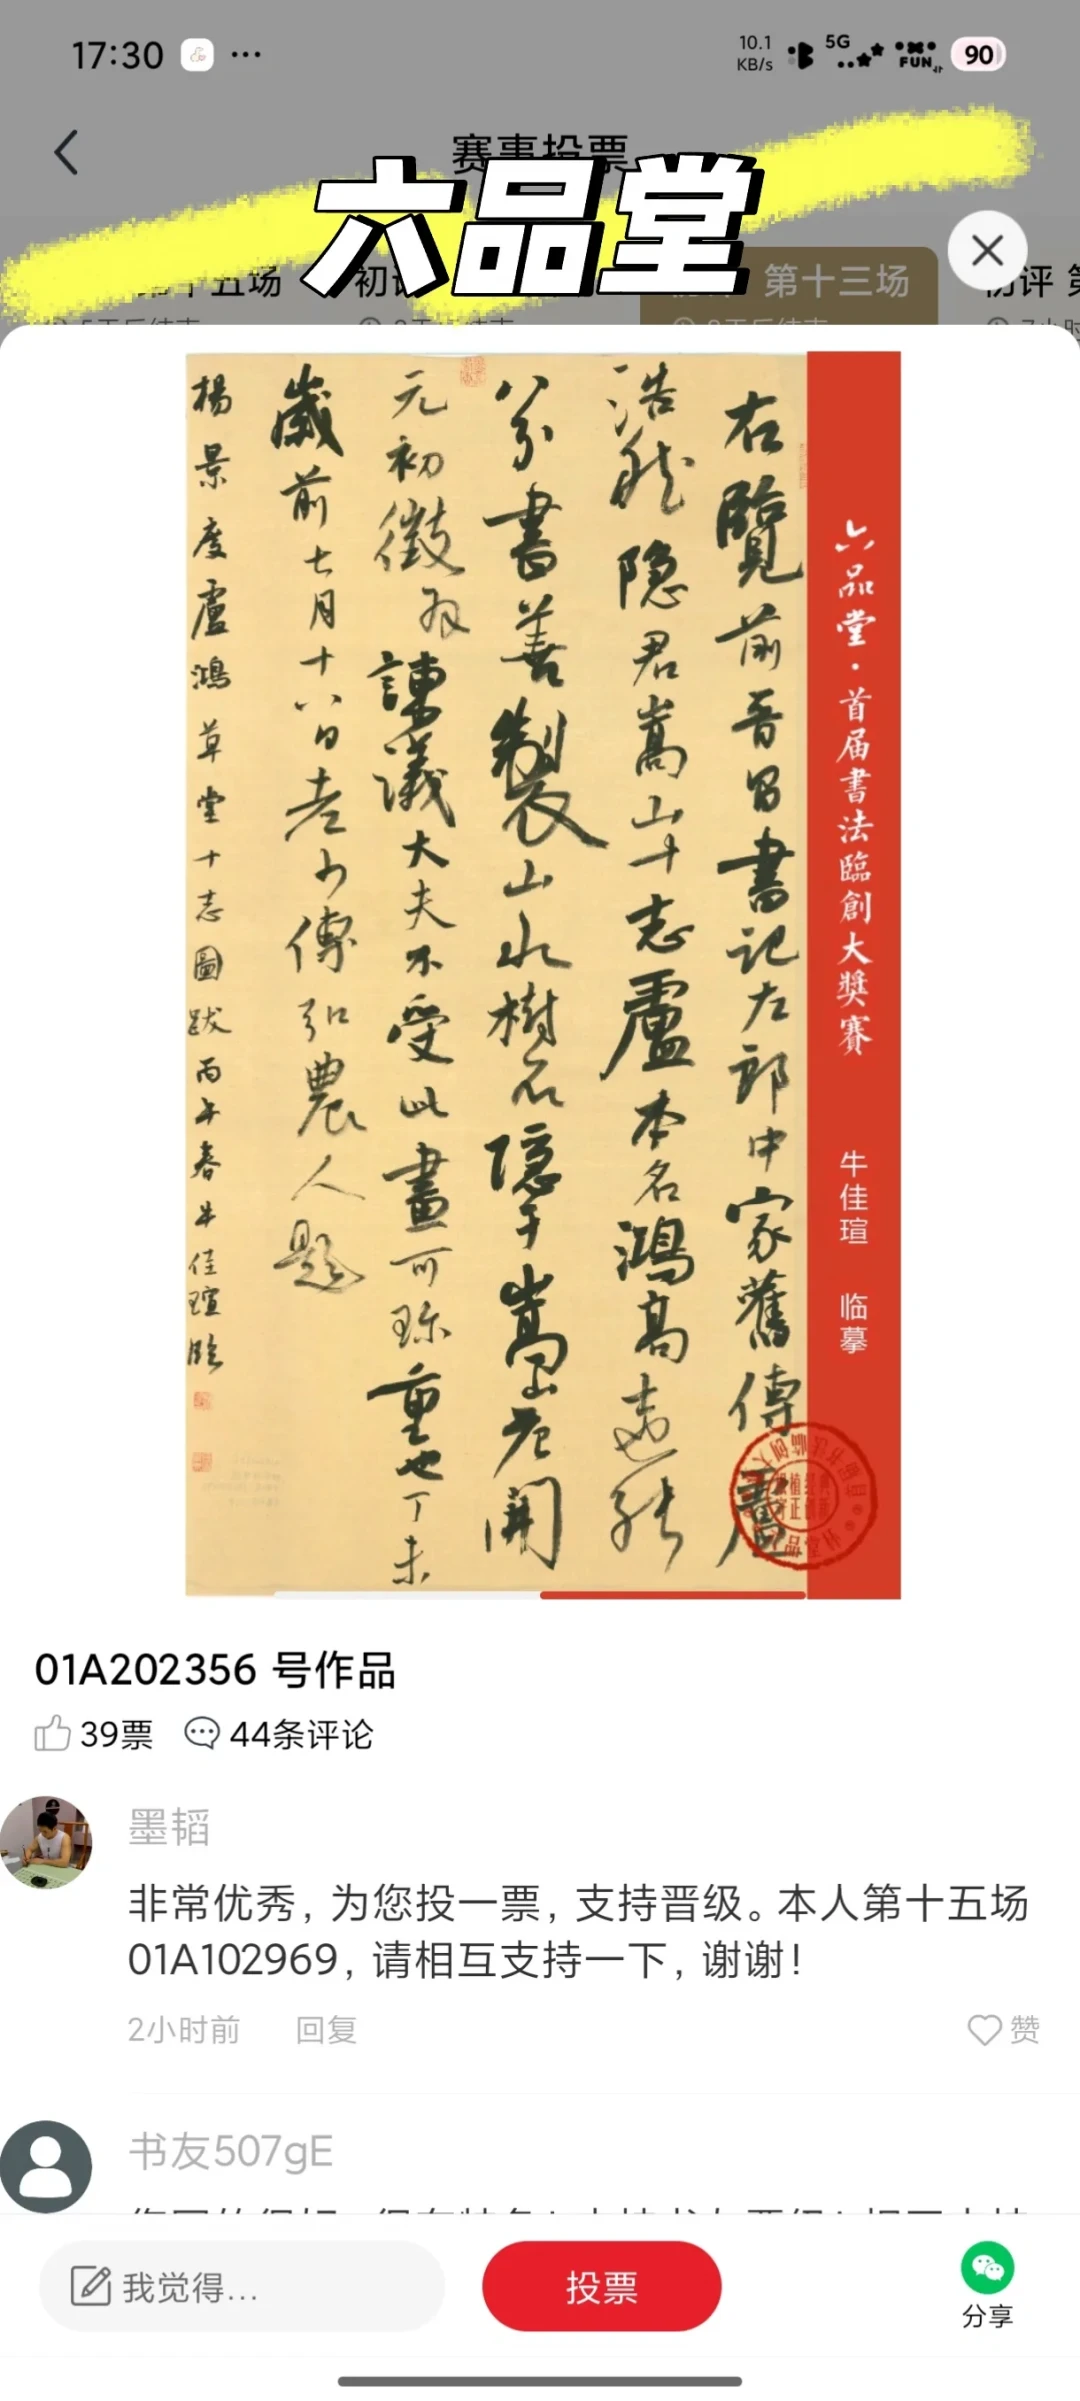 17:30
10.1 KB/s
5G
FUN
90
赛事投票
六品堂
第十五场
初评
第十三场
初评 第
右覽前晉昌書記左郎中家舊傳盧
浩然隐君嵩山十志盧本名鴻高士能
八分書善製山水樹石隐于嵩山唐開
元初徵为諫議大夫不受此畫可珎重也丁未
歲前七月十八日老少傅弘農人題
楊景度盧鴻草堂十志圖跋丙午春牛佳瑄臨
六品堂·首届書法臨創大獎賽
牛佳瑄 临摹
01A202356 号作品
39票 44条评论
墨韬
非常优秀，为您投一票，支持晋级。本人第十五场
01A102969，请相互支持一下，谢谢！
2小时前 回复 赞
书友507gE
我觉得...
投票
分享